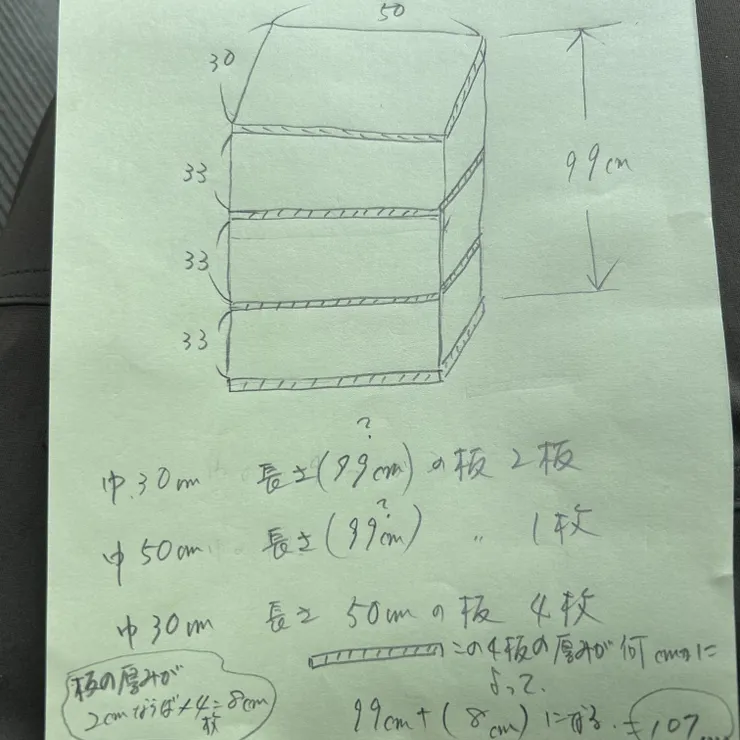 50
30
33
99cm
33
33
?
巾30cm 長さ(99cm)の板2板
?
巾50cm 長さ(99cm) 〃 1枚
巾30cm 長さ 50cmの板 4枚
この4板の厚みが何cmかに
よって、
99cm+(8cm)になる。=107....
板の厚みが
2cmならば×4=8cm
枚